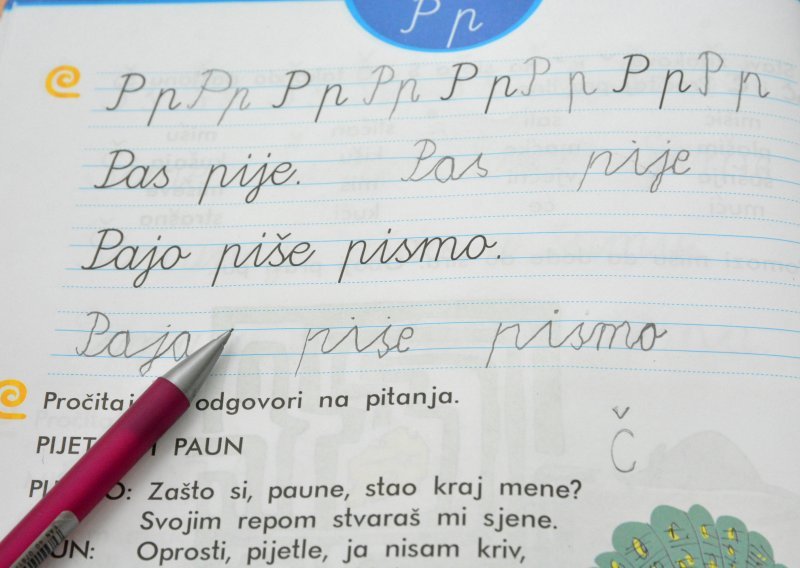 P p
P p P p P p P p P p P p P p P p
Pas pije. Pas pije
Pajo piše pismo.
Paja piše pismo
Pročitaj odgovori na pitanja.
I PAUN
Č
Zašto si, paune, stao kraj mene?
Svojim repom stvaraš mi sjene.
Oprosti, pijetle, ja nisam kriv,